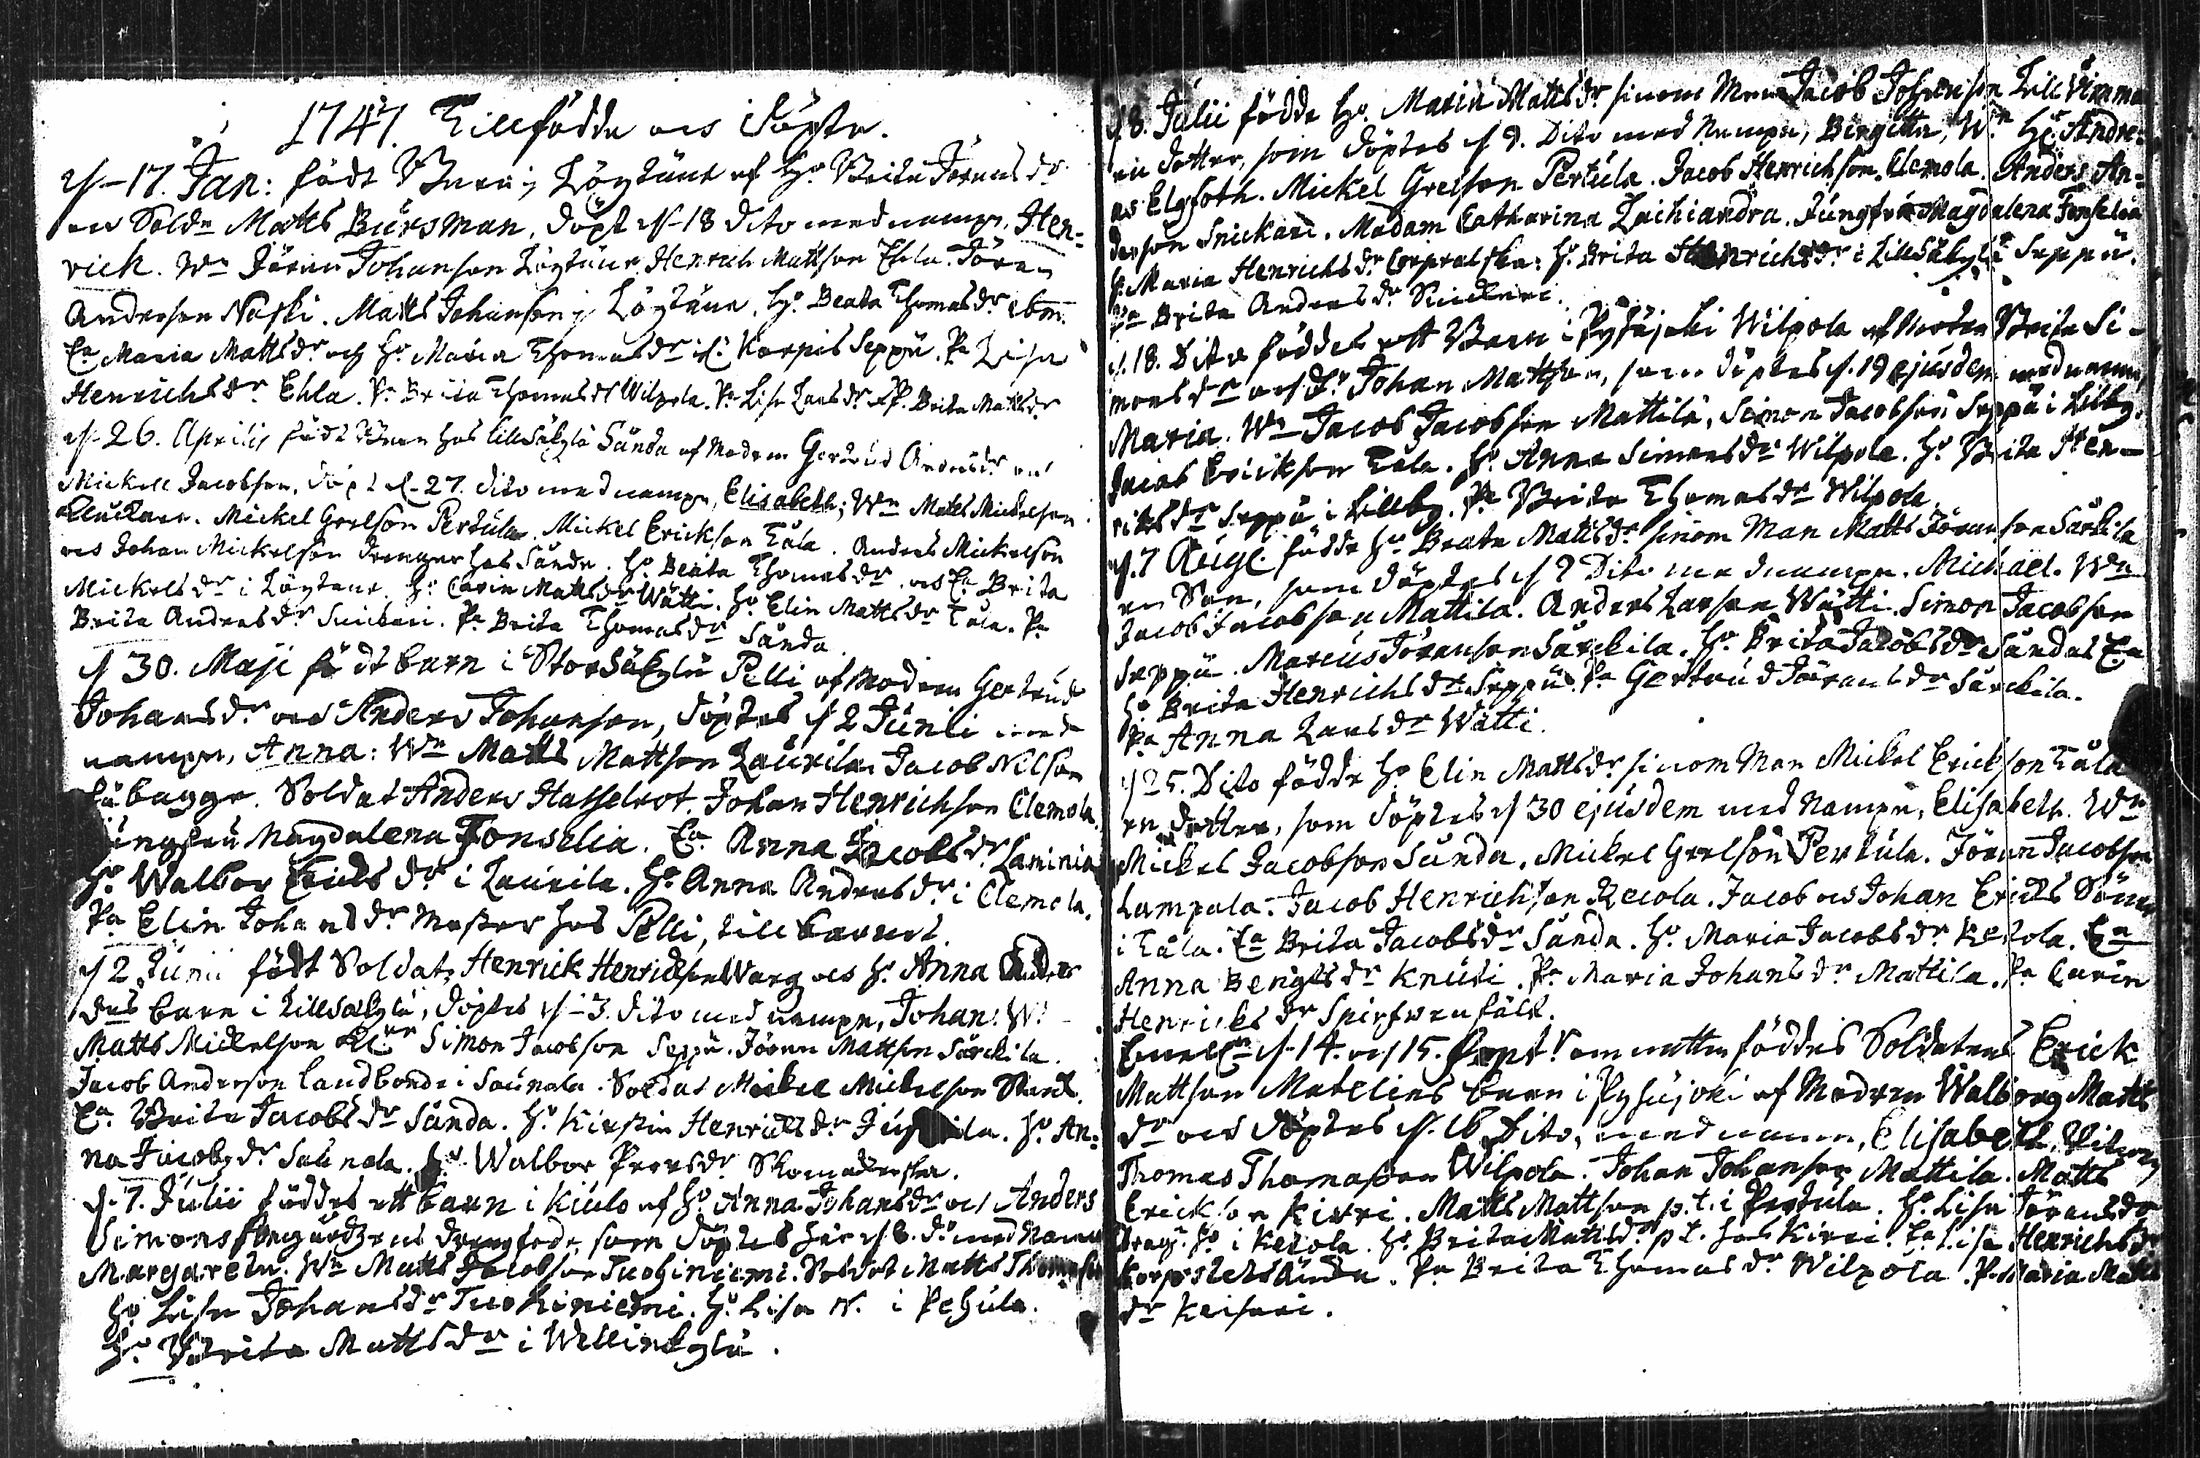 1747. Till födde och Döpte.
d. 17. Jan: födt Barn i Löytäne af H:o Brita Jöransdr
och Sold:n Matts Bursman, döpt d. 18 dito med nampn, Hen-
rich. Wn Jöran Johanson Löytäne Henrich Mattson Ehla. Jöran
Anderson Naski. Matts Johanson i Löytäne, H:o Beata Thomasdr ibm.
Ea Maria Mattsdr och H:o Maria Thomasdr Korpis Seppä. Pa Lisa
Henrichsdr Ehla. Pa Brita Thomasdr Wilpola. Pa Lisa Larsdr Pa Brita Mattsdr
d. 26. Aprilis födt Barn hos Lillsäkylä Sända af Modren Gertrud Andersdr och
Mickell Jacobson, döpt d. 27. dito med nampn, Elisabeth; Wn Matts Mickelson
Mickel Grelson Pertula. Mickel Erickson Kåla. Anders Mickelson
och Johan Mickelson drenger hos Sända. H:o Beata Thomasdr och Ea Brita
Mickelsdr i Löytäne. H:o Carin Mattsdr Wätti. H:o Elin Mattsdr Kåla. Pa
Brita Andersdr Snickari. Pa Brita Thomasdr Sända.
d 30. Maji födt barn i Storsäkylä Pelli af Modren Gertrud
Johansdr och Anders Johanson, döptes d 2 Junii med
nampn, Anna: Wn Matts Mattson Laurila Jacob Nilson
Fåbagge. Soldat Anders Hasselrot Johan Henrichson Clemola.
Magdalena Fonselia. Ea Anna Jacobsdr Laminia
H:o Walbor Ericksdr i Laurila. H:o Anna Andersdr i Clemola.
Pa Elin Johansdr Moster hos Pelli, till barnet.
d 2 Junii födt Soldat Henrick Henrichson Warg och H:o Anna Anders
drs barn i Lillsäkylä, döptes d. 3. dito med nampn, Johan: Wn
Matts Mickelson Simon Jacobson Seppä. Jöran Mattson Särkilä.
Jacob Anderson landbonde i Saunala. Soldat Mickel Mickelson
Ea Brita Jacobsdr Sända. H:o Kirstin Henrichsdr H:o An-
na Jacobsdr Saunala. H:o Walbor Persdr
d. 7. Julii föddes ett barn i Kiulo af H:o Anna Johansdr och Anders
Simonson som döptes här d 8. do med Nampn
Margareta. Wn Matts Jacobson Tuohiniemi. Soldat Matts Thomasson
H:o Lisa Johansdr Tuohiniemi. H:o Lisa N. i Pehula.
H:o Brita Mattsdr i Wellinkylä.
d 8. Julii födde H:o Maria Mattsdr sinom Man Jacob Johanson
en dotter, som döptes d 9. Dito med Nampn, Birgitta, Wn Hr Andre-
as Elgfoth. Mickel Grelson Pertula. Jacob Henrichson Clemola. Anders An-
derson Snickari. Madam Catharina Zachiandra. Jungfru Magdalena Fonselia
H:o Maria Henrichsdr Corpralska: H:o Brita Henrichsdr i Lillsäkylä Seppä.
Pa Brita Andersdr Snickari.
d. 18. Dito föddes ett Barn i Pyhäjoki Wilpola af Modren Brita Si-
monsdr och Johan Mattson, som döptes d. 19 ejusdem med nampn,
Maria. Wn Jacob Jacobson Mattila, Simon Jacobson Seppä i Lillby.
Jacob Erickson Kåla. H:o Anna Simonsdr Wilpola. H:o Brita Hen-
richsdr Seppä i Lillby. Pa Brita Thomasdr Wilpola.
d. 7 Aug: födde H:o Beata Mattsdr sinom Man Matts Jöranson Särkilä
en Son, som döptes d 9 Dito med nampn. Michäel. Wn
Jacob Jacobson Mattila. Anders Larson Wätti. Simon Jacobson
Seppä. Marcus Jöranson Särckilä. H:o Brita Jacobsdr Sända Ea
H:o Brita Henrichsdr Seppä. Pa Gertrud Jöransdr Särckilä.
Pa Anna Larsdr Wätti.
d 25. Dito födde H:o Elin Mattsdr sinom Man Mickel Erickson Kåla
en dotter, som döptes d 30 ejusdem med Nampn, Elisabeth. Wn
Mickel Jacobson Sända. Mickel Grelson Pertula. Jöran Jacobson
Lampala. Jacob Henrichson Recola. Jacob och Johan Ericks Söner
i Kåla. Ea Brita Jacobsdr Sända. H:o Maria Jacobsdr Kecola. Ea
Anna Bengtsdr Knuti. Pa Maria Johansdr Mattila. Pa Carin
Henricksdr
d. 14. och 15. Sept:r om natten föddes Soldatens Erick
Mattson Matelins barn i Pyhäjoki af Modren Walborg Matts
dr och döptes d. 16 Dito, med nampn, Elisabeth
Thomas Thomasson Wilpola. Johan Johanson Mattila. Matts
Erickson Kirri. Matts Mattson p.t. i Pertula. H:o Lisa Jöransdr
i Kecola. H:o Brita Mattsdr p.t. hos Kirri. Ea Lisa Henrichsdr
Pa Brita Thomasdr Wilpola. Pa Maria Matts
dr Keisari.